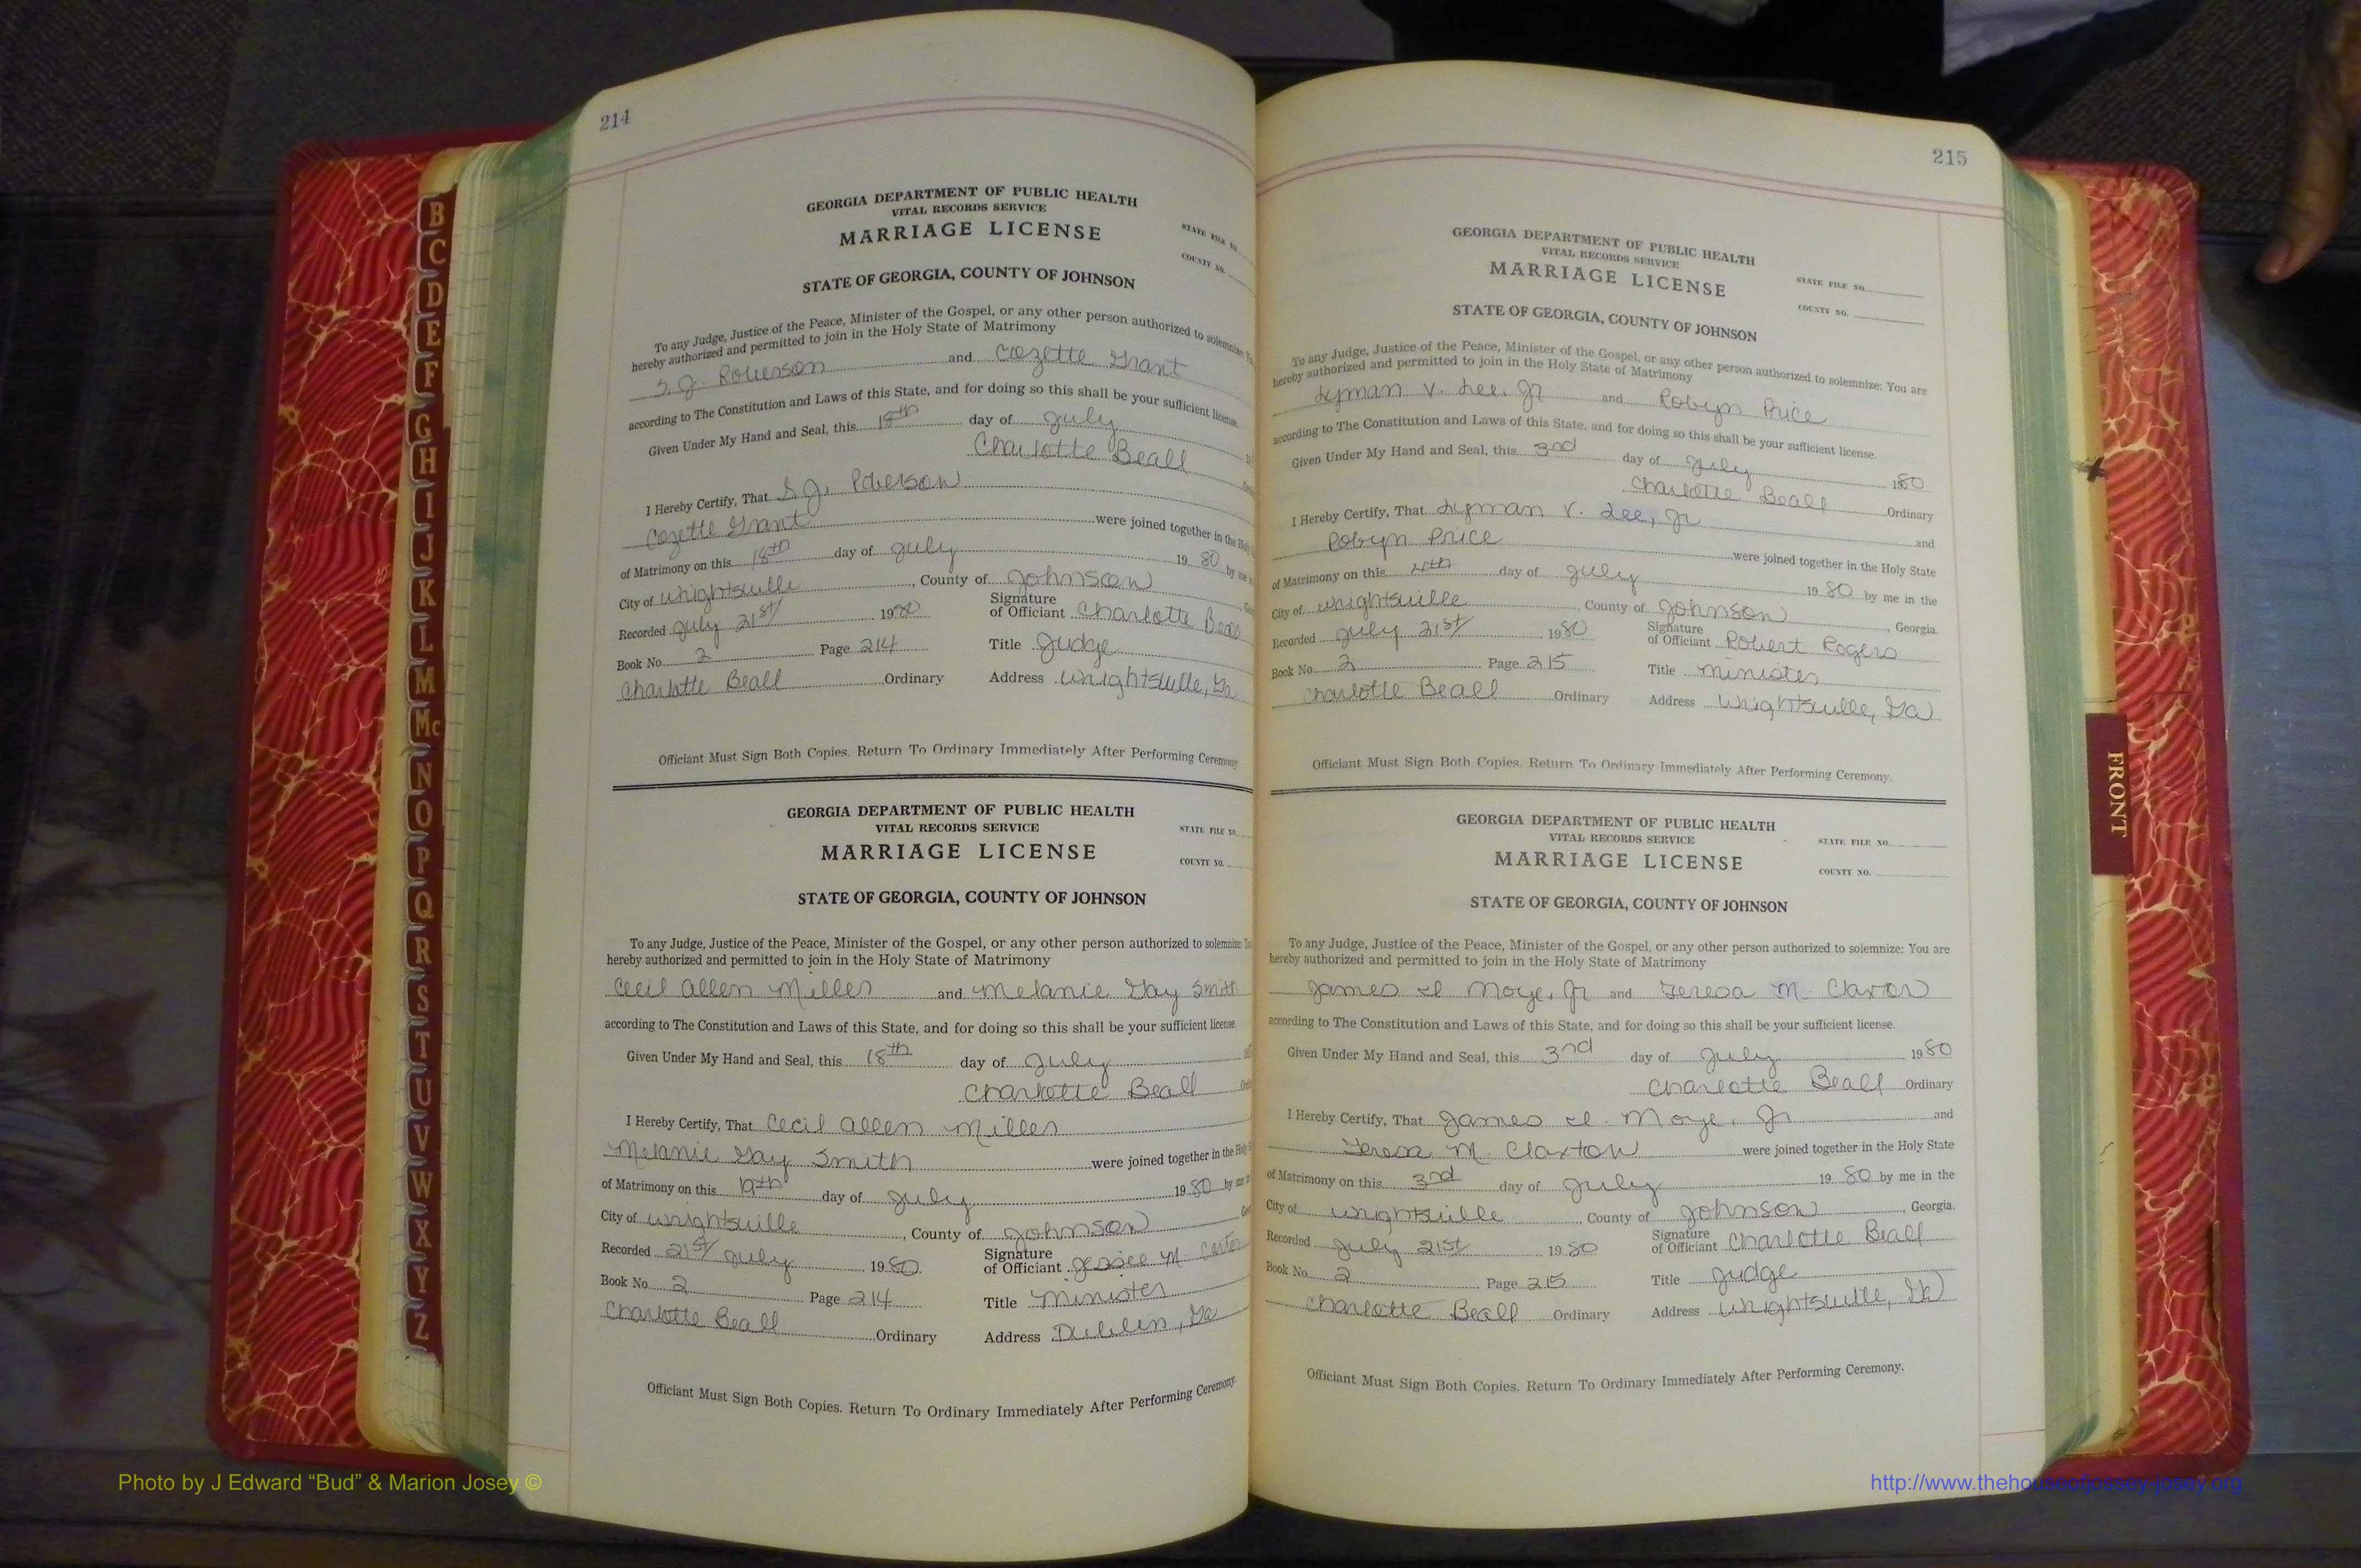 214
GEORGIA DEPARTMENT OF PUBLIC HEALTH
VITAL RECORDS SERVICE
MARRIAGE LICENSE
STATE FILE NO.
COUNTY NO.
STATE OF GEORGIA, COUNTY OF JOHNSON
To any Judge, Justice of the Peace, Minister of the Gospel, or any other person authorized to solemnize:
hereby authorized and permitted to join in the Holy State of Matrimony
S. J. Roberson and Cozette Grant
according to The Constitution and Laws of this State, and for doing so this shall be your sufficient license.
Given Under My Hand and Seal, this 18th day of July
Charlotte Beall
I Hereby Certify, That S. J. Roberson
Cozette Grant were joined together in the
of Matrimony on this 18th day of July 19 80 by me
City of Wrightsville, County of Johnson
Recorded July 21st 1980 Signature of Officiant Charlotte Beall
Book No. 2 Page 214 Title Judge
Charlotte Beall Ordinary Address Wrightsville, Ga
Officiant Must Sign Both Copies. Return To Ordinary Immediately After Performing Ceremony
GEORGIA DEPARTMENT OF PUBLIC HEALTH
VITAL RECORDS SERVICE
MARRIAGE LICENSE
STATE FILE NO.
COUNTY NO.
STATE OF GEORGIA, COUNTY OF JOHNSON
To any Judge, Justice of the Peace, Minister of the Gospel, or any other person authorized to solemnize:
hereby authorized and permitted to join in the Holy State of Matrimony
Cecil Allen Miller and Melanie Gay Smith
according to The Constitution and Laws of this State, and for doing so this shall be your sufficient license.
Given Under My Hand and Seal, this 18th day of July
Charlotte Beall
I Hereby Certify, That Cecil Allen Miller
Melanie Gay Smith were joined together in the
of Matrimony on this 19th day of July 19 80 by me
City of Wrightsville, County of Johnson
Recorded 21st July 1980 Signature of Officiant Jessee M. Carter
Book No. 2 Page 214 Title Minister
Charlotte Beall Ordinary Address Dublin, Ga
Officiant Must Sign Both Copies. Return To Ordinary Immediately After Performing Ceremony.
215
GEORGIA DEPARTMENT OF PUBLIC HEALTH
VITAL RECORDS SERVICE
MARRIAGE LICENSE
STATE FILE NO.
COUNTY NO.
STATE OF GEORGIA, COUNTY OF JOHNSON
To any Judge, Justice of the Peace, Minister of the Gospel, or any other person authorized to solemnize: You are
hereby authorized and permitted to join in the Holy State of Matrimony
Lyman V. Lee, Jr and Robyn Price
according to The Constitution and Laws of this State, and for doing so this shall be your sufficient license.
Given Under My Hand and Seal, this 3rd day of July 1980
Charlotte Beall Ordinary
I Hereby Certify, That Lyman V. Lee, Jr and
Robyn Price were joined together in the Holy State
of Matrimony on this 4th day of July 19 80 by me in the
City of Wrightsville, County of Johnson, Georgia.
Recorded July 21st 1980 Signature of Officiant Robert Rogers
Book No. 2 Page 215 Title Minister
Charlotte Beall Ordinary Address Wrightsville, Ga
Officiant Must Sign Both Copies. Return To Ordinary Immediately After Performing Ceremony.
GEORGIA DEPARTMENT OF PUBLIC HEALTH
VITAL RECORDS SERVICE
MARRIAGE LICENSE
STATE FILE NO.
COUNTY NO.
STATE OF GEORGIA, COUNTY OF JOHNSON
To any Judge, Justice of the Peace, Minister of the Gospel, or any other person authorized to solemnize: You are
hereby authorized and permitted to join in the Holy State of Matrimony
James Moye, Jr and Teresa M. Claxton
according to The Constitution and Laws of this State, and for doing so this shall be your sufficient license.
Given Under My Hand and Seal, this 3rd day of July 1980
Charlotte Beall Ordinary
I Hereby Certify, That James Moye, Jr and
Teresa M. Claxton were joined together in the Holy State
of Matrimony on this 3rd day of July 19 80 by me in the
City of Wrightsville, County of Johnson, Georgia.
Recorded July 21st 1980 Signature of Officiant Charlotte Beall
Book No. 2 Page 215 Title Judge
Charlotte Beall Ordinary Address Wrightsville, Ga
Officiant Must Sign Both Copies. Return To Ordinary Immediately After Performing Ceremony.
B
C
D
E
F
G
H
I
J
K
L
M
Mc
N
O
P
Q
R
S
T
U
V
W
X
Y
Z
FRONT
Photo by J Edward “Bud” & Marion Josey ©
http://www.thehouseofjossey-josey.org